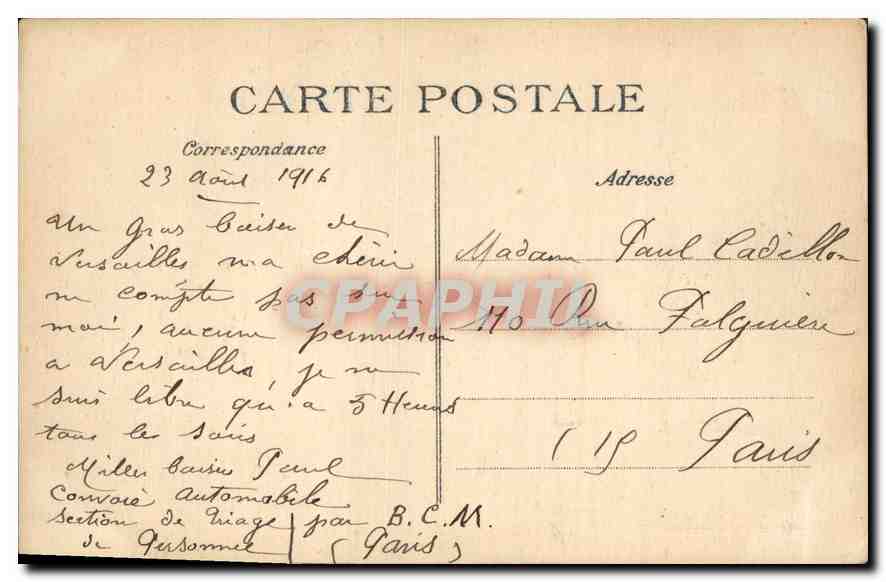 CARTE POSTALE
Correspondance
23 Août 1916
un gros baiser de
Versailles ma chérie
ne compte pas sur
moi, aucune permission
a Versailles, je ne
suis libre qu'a 5 Heures
tous les soirs
Milles baisers Paul
Convoie automobile
section de Triage
de Personnel
par B.C.M.
(Paris)
Adresse
Madame Paul Cadillon
110 Rue Falguière
(15 Paris
CPAPHIL